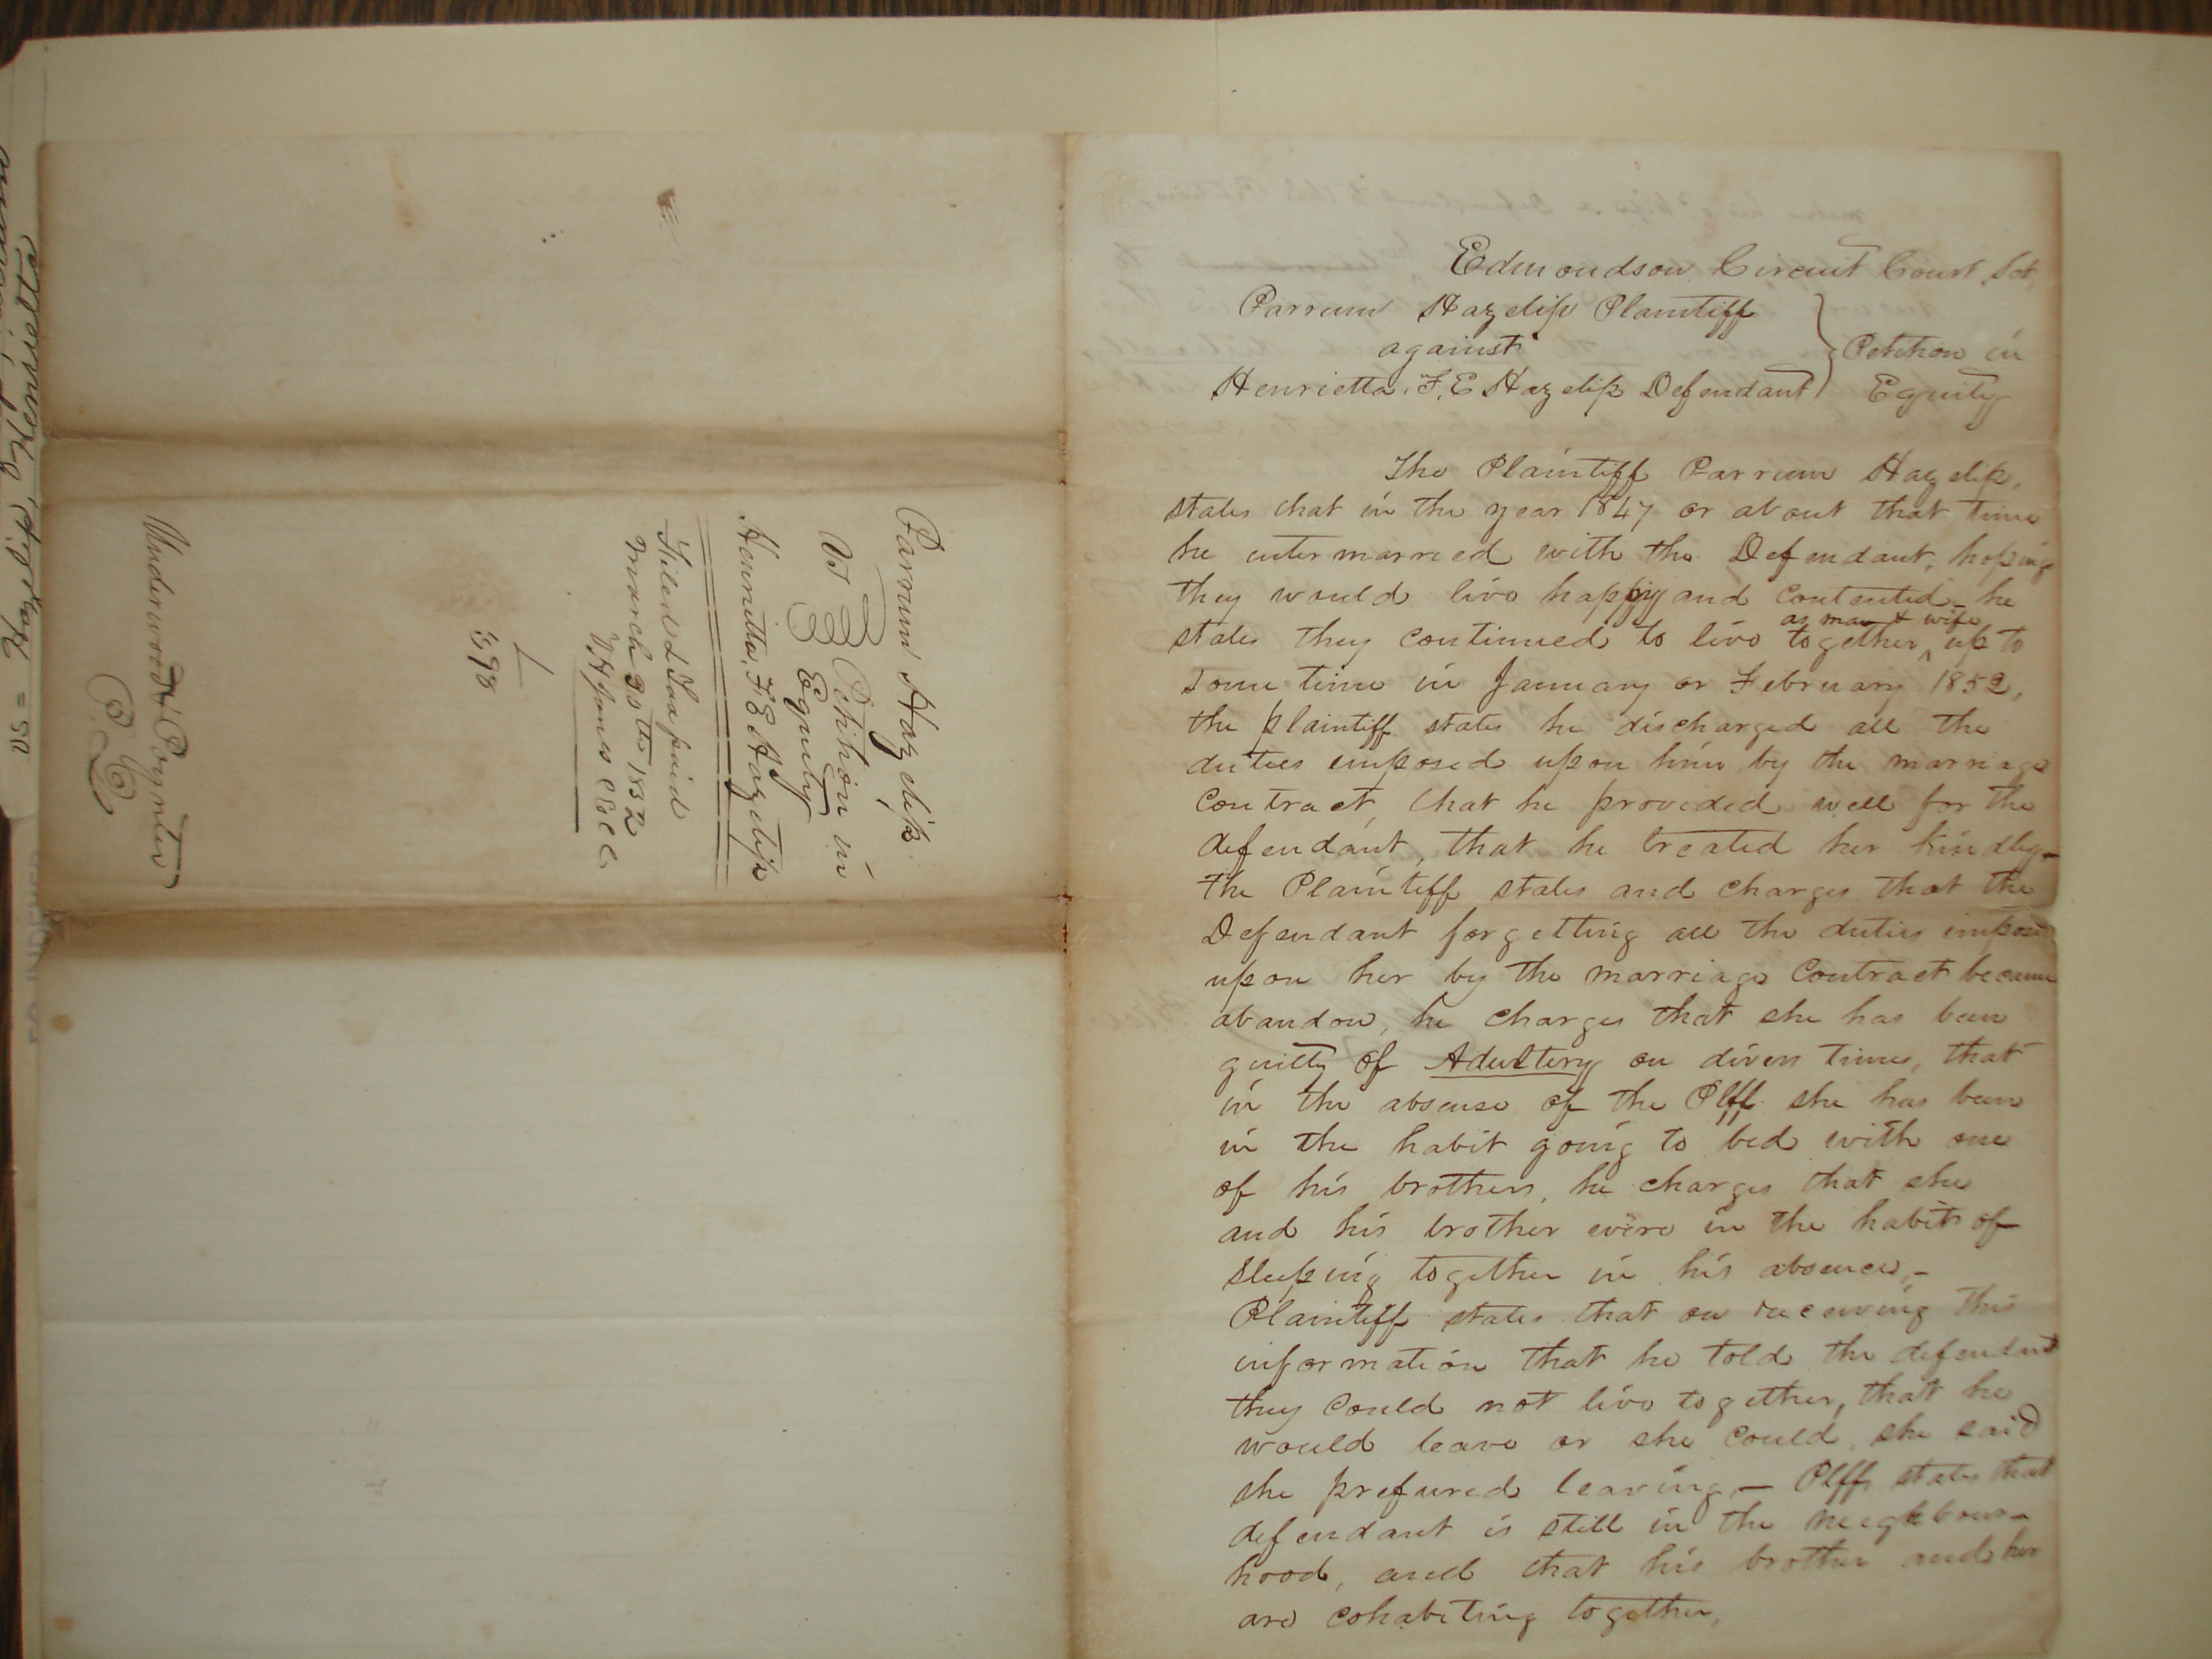 vs = Hazelip, Henrietta
Parrum Hazelip
vs Petition in
Equity
Henrietta, F E Hazelip
Filed & Tax paid
March 30th 1852
L
398
Underwood & Poynter
P. Q
Edmondson Circuit Court Sct
Parrum Hazelip Plaintiff
against
Henrietta. F. E Hazelip Defendant
Petition in
Equity
The Plaintiff Parrum Hazelip,
states that in the year 1847 or about that time
he intermarried with the Defendant, hoping
they would live happy and contented – he
states they continued to live together as man & wife up to
some time in January or February 1852,
the plaintiff states he discharged all the
duties imposed upon him by the marriage
Contract, that he provided well for the
defendant, that he treated her kindly –
The Plaintiff states and charges that the
Defendant forgetting all the duties imposed
upon her by the marriage Contract became
abandon, he charges that she has been
guilty of Adultery on divers times, that
in the absense of the Plff she has been
in the habit going to bed with one
of his brothers, he charges that she
and his brother were in the habit of
sleeping together in his absence, –
Plaintiff states that on receiving this
information that he told the defendant
they could not live together, that he
would leave or she could, she said
she prefured leaving – Plff states that
defendant is still in the neighbour-
hood, and that his brother and her
are cohabiting together,